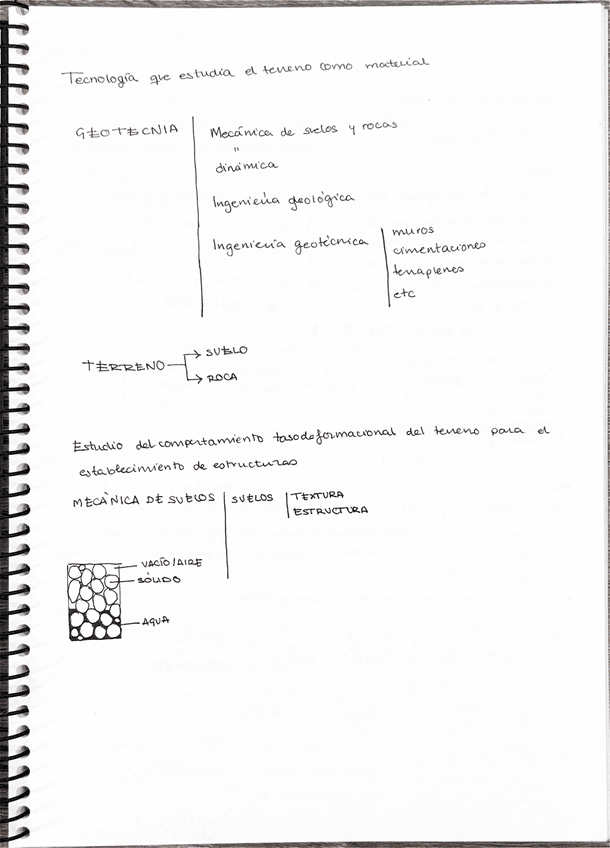 Tecnología que estudia el terreno como material
GEOTECNIA
Mecánica de suelos y rocas
"
dinámica
Ingeniería geológica
Ingeniería geotécnica
muros
cimentaciones
terraplenes
etc
TERRENO
SUELO
ROCA
Estudio del comportamiento tasodeformacional del terreno para el
establecimiento de estructuras
MECÁNICA DE SUELOS
SUELOS
TEXTURA
ESTRUCTURA
VACÍO/AIRE
SÓLIDO
AGUA